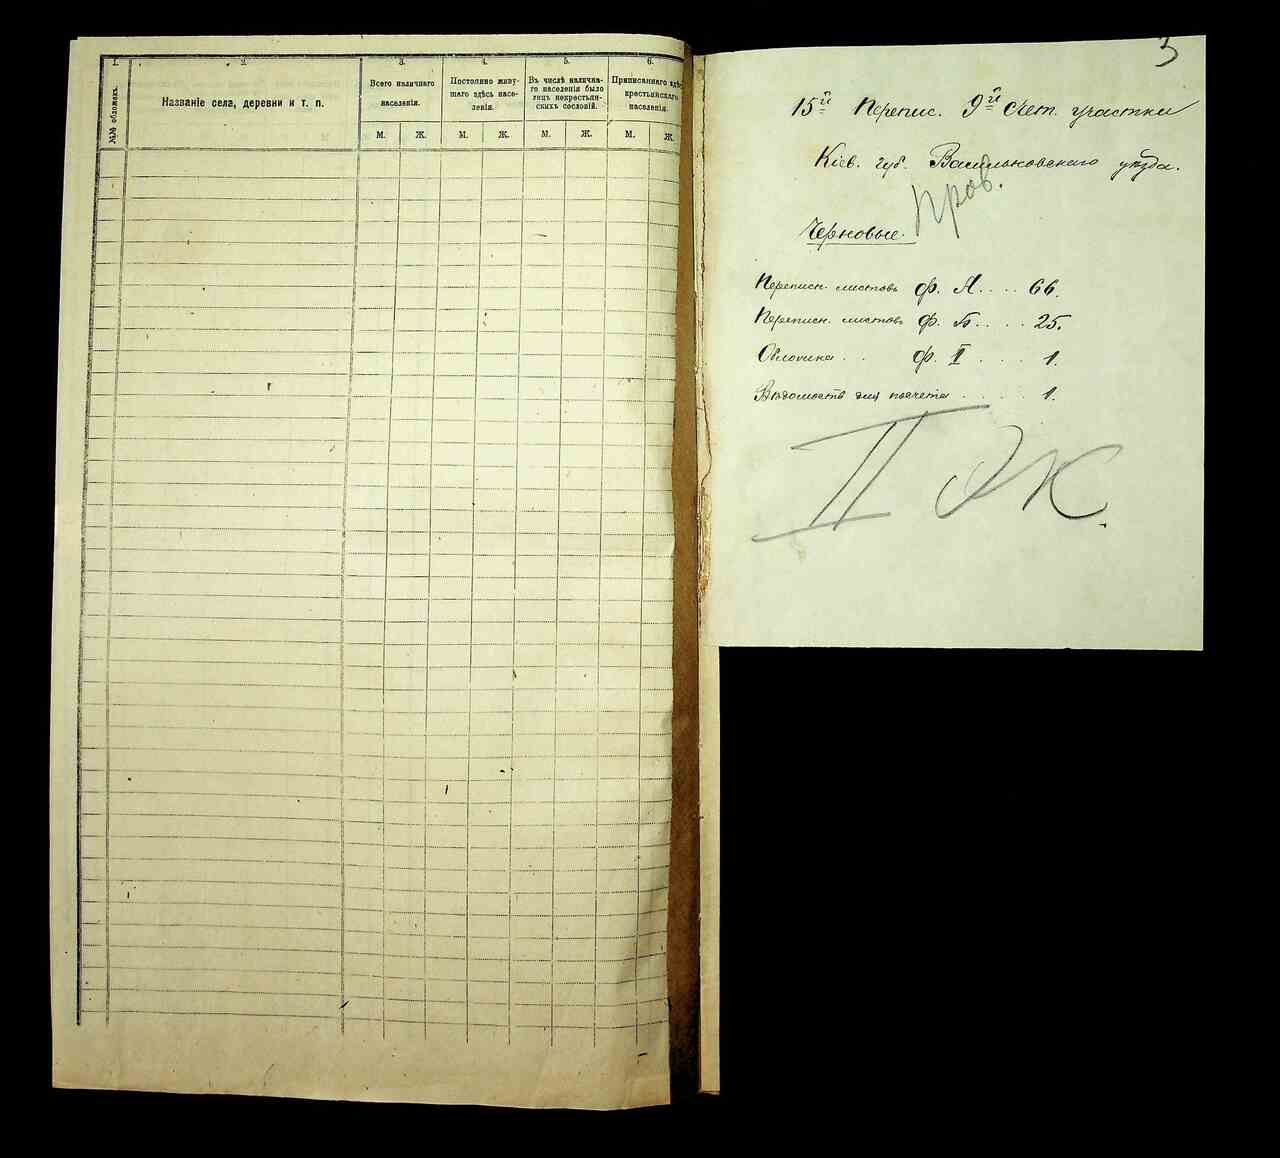 1.
2.
3.
4.
5.
6.
№№ обложекъ.
Названіе села, деревни и т. п.
Всего наличнаго
населенія.
Постоянно живу-
щаго здѣсь насе-
ленія.
Въ числѣ налична-
го населенія было
лицъ некрестьян-
скихъ сословій.
Приписаннаго здѣсь
крестьянскаго
населенія.
М.
Ж.
М.
Ж.
М.
Ж.
М.
Ж.
3
15й Перепис. 9й Счет. участки
Кіев. губ. Васильковскаго уѣзда.
Пров.
Черновые.
Переписн. листовъ ф. А.... 66.
Переписн. листовъ ф. Б..... 25.
Обложка.. ф. II.... 1.
Вѣдомость для подсчета..... 1.
II ЭК.